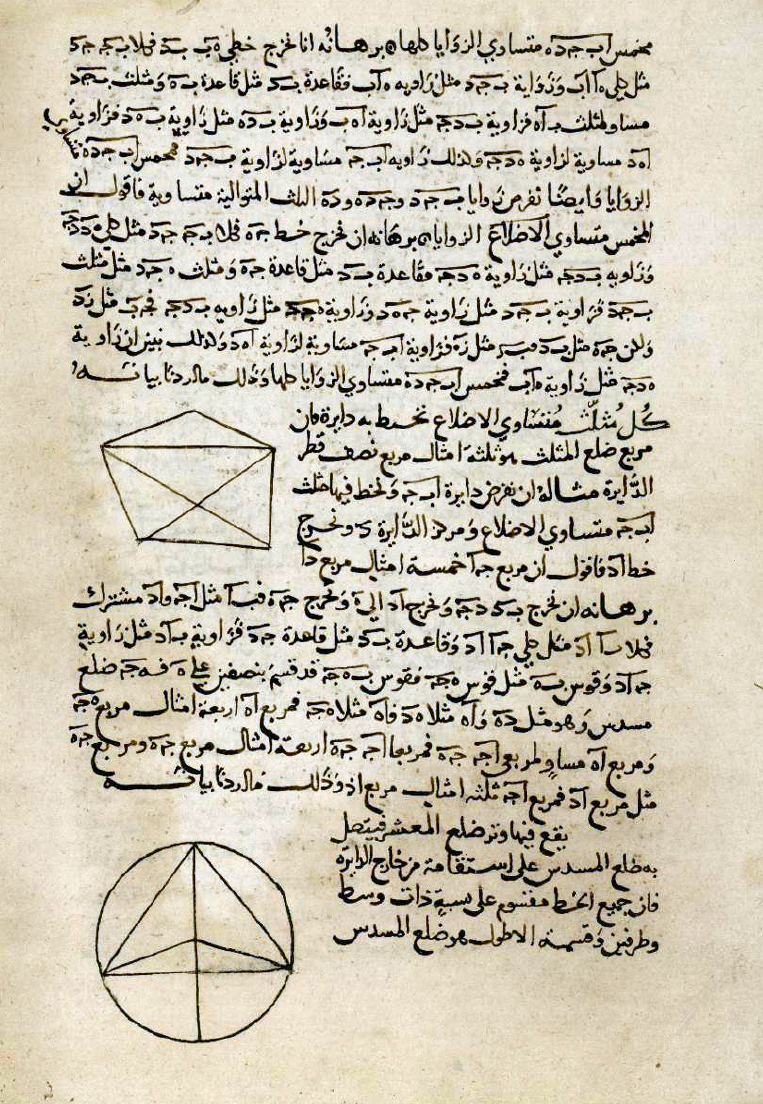 مخمس ابجده متساوي الزوايا كلها برهانه انا نخرج خطي هب بد فلاب جه جد
مثل كلي ها اب وزاوية بجد مثل زاويه هاب فقاعدة بد مثل قاعدة به ومثلث بجد
مساو لمثلث باه فزاوية بدجه مثل زاوية اهب وزاوية بده مثل زاوية بهد فزاوية
اهد مساوية لزاوية هدجه وكذلك زاويه ابجه مساوية لزاوية بجد فمخمس ابجده
الزوايا وايضا نفرض زوايا بجد وجده وده الثلث المتوالية متساوية فاقول ان
المخمس متساوي الاضلاع الزوايا برهانه ان نخرج خط جه فلاب جه جد مثل كلي هد دجه
وزاويه بدجه مثل زاوية هدجه فقاعدة بد مثل قاعدة جه ومثلث هجد مثل مثلث
بجد فزاوية بجد مثل زاوية جهد وزاوية هجد مثل زاويه بدجه فجب مثل زد
ولكن جه مثل بد فبز مثل زه فزاوية ابجه مساوية لزاوية اهد وكذلك نبين ان زاوية
هدجه مثل زاوية هاب فمخمس ابجده متساوي الزوايا كلها وذلك ما اردنا بيانه
كل مثلث متساوي الاضلاع تحيط به دايرة فان
مربع ضلع المثلث هو ثلثة امثال مربع نصف قطر
الدايرة مثاله ان نفرض دايرة ابجه ونخط فيها مثلث
ابجه متساوي الاضلاع ومركز الدايرة د ونخرج
خط اد فاقول ان مربع جا خمسة امثال مربع دا
برهانه ان نخرج بد دجه ونخرج اد الي ه ونخرج جه فبا مثل اجه واد مشترك
فلاب ا اد مثل كلي جا اد وقاعدة بد مثل قاعدة جد فزاوية باد مثل زاوية
جاد وقوس به مثل قوس هجه فقوس بهجه قد قسم بنصفين علي ه فهجه ضلع
مسدس وهو مثل ده واه مثلا هد فاه مثلا هجه فمربع اه اربعة امثال مربع هجه
ومربع اه مساو لمربعي اجه جه فمربعا اجه جه اربعة امثال مربع جه ومربع جه
مثل مربع اد فمربع اجه ثلثه امثال مربع اد وذلك ما اردنا بيانه
يقع فيها وتر ضلع المعشر فيتصل
به ضلع المسدس علي استقامة من خارج الدايرة
فان جميع الخط مقسوم علي نسبة ذات وسط
وطرفين وقسمته الاطول هو ضلع المسدس